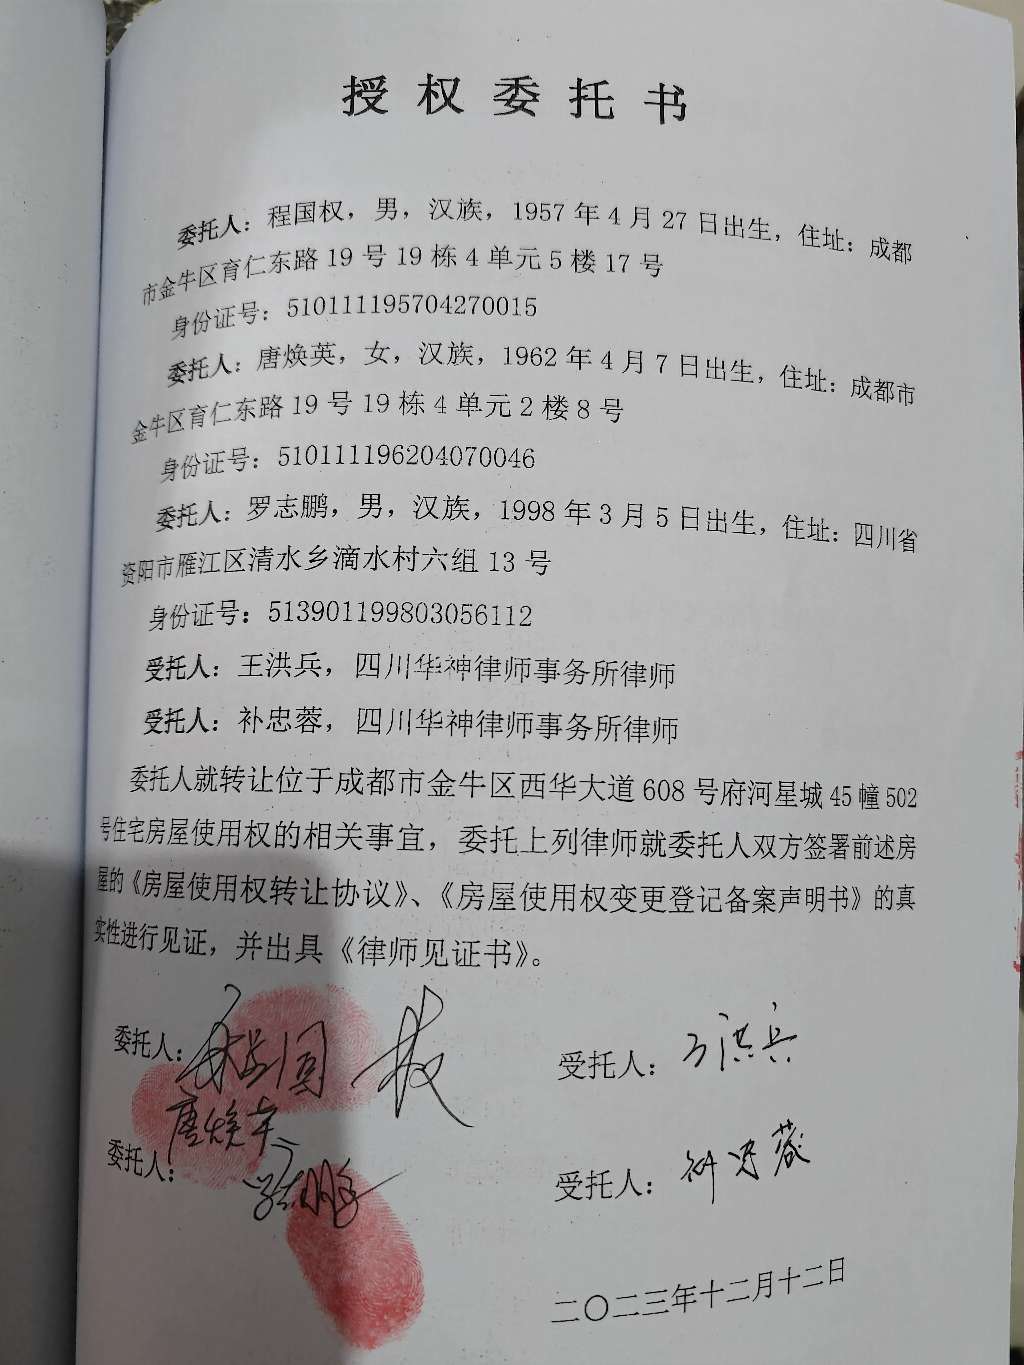 授权委托书
委托人：程国权，男，汉族，1957年4月27日出生，住址：成都
市金牛区育仁东路19号19栋4单元5楼17号
身份证号：510111195704270015
委托人：唐焕英，女，汉族，1962年4月7日出生，住址：成都市
金牛区育仁东路19号19栋4单元2楼8号
身份证号：510111196204070046
委托人：罗志鹏，男，汉族，1998年3月5日出生，住址：四川省
资阳市雁江区清水乡滴水村六组13号
身份证号：513901199803056112
受托人：王洪兵，四川华神律师事务所律师
受托人：补忠蓉，四川华神律师事务所律师
委托人就转让位于成都市金牛区西华大道608号府河星城45幢502
号住宅房屋使用权的相关事宜，委托上列律师就委托人双方签署前述房
屋的《房屋使用权转让协议》、《房屋使用权变更登记备案声明书》的真
实性进行见证，并出具《律师见证书》。
委托人：程国权
受托人：王洪兵
唐焕英
委托人：罗志鹏
受托人：补忠蓉
二〇二三年十二月十二日